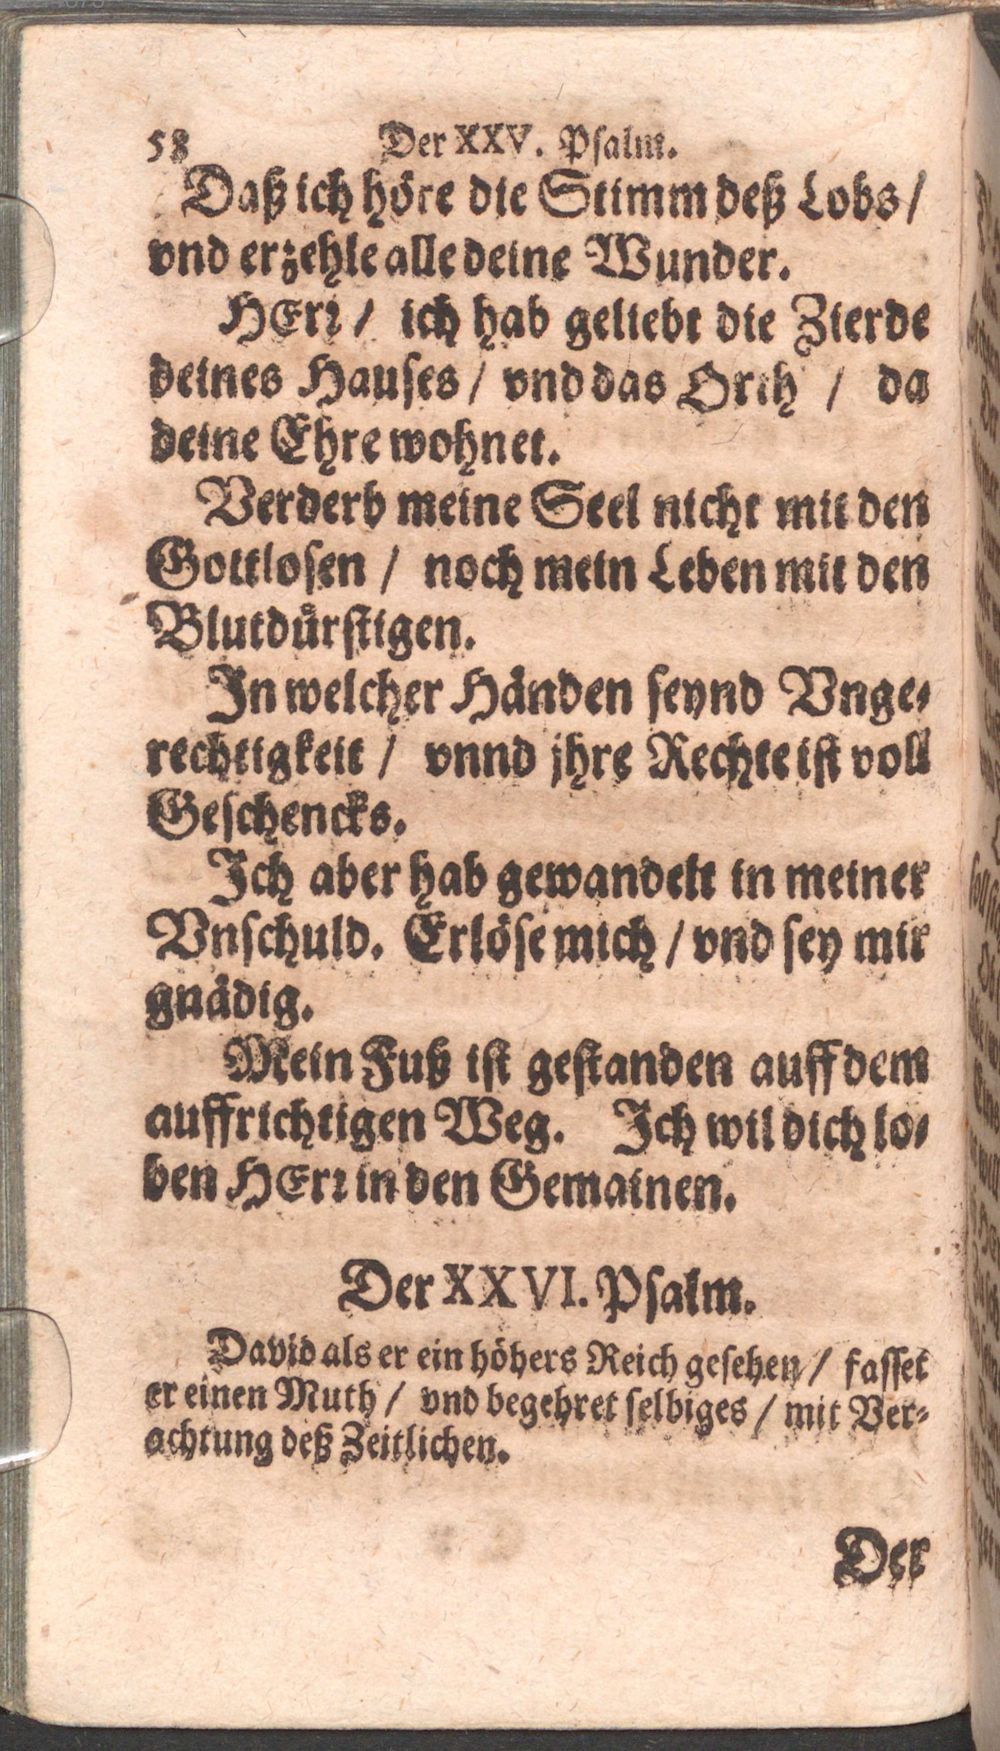 58 Der XXV. Psalm.
Daß ich höre die Stimm deß Lobs /
vnd erzehle alle deine Wunder.
HErr / ich hab geliebt die Zierde
deines Hauses / vnd das Orth / da
deine Ehre wohnet.
Verderb meine Seel nicht mit den
Gottlosen / noch mein Leben mit den
Blutdürstigen.
In welcher Händen seynd Vnge-
rechtigkeit / vnnd jhre Rechte ist voll
Geschencks.
Ich aber hab gewandelt in meiner
Vnschuld. Erlöse mich / vnd sey mir
gnädig.
Mein Fuß ist gestanden auff dem
auffrichtigen Weg. Ich wil dich lo-
ben HErr in den Gemainen.
Der XXVI. Psalm.
David als er ein höhers Reich gesehen / fasset
er einen Muth / vnd begehret selbiges / mit Ver-
achtung deß Zeitlichen.
Der